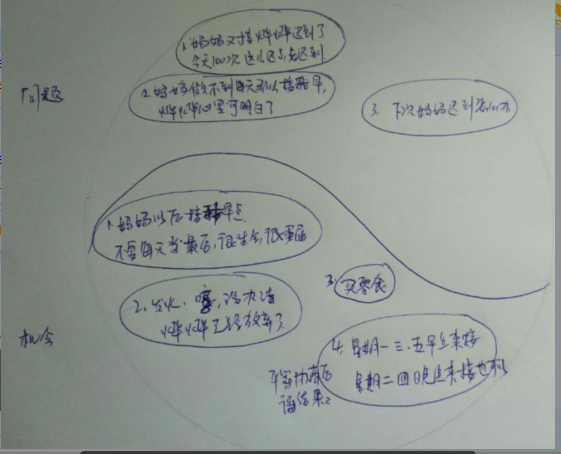 问题
1. 妈妈又接烨烨迟到了
今天100次这么迟
迟到
2. 妈妈做不到每天都接
早,
烨烨心里可明白了
3. 下次妈妈迟到怎么办
1. 妈妈以后接早点
不要每天当最后, 很生气, 很委屈
2. 发火、
, 没办法
烨烨已经放弃了
3. 买零食
机会
4. 星期一三五早点来接
星期二四晚点来接也可以
平等协商后
得结果